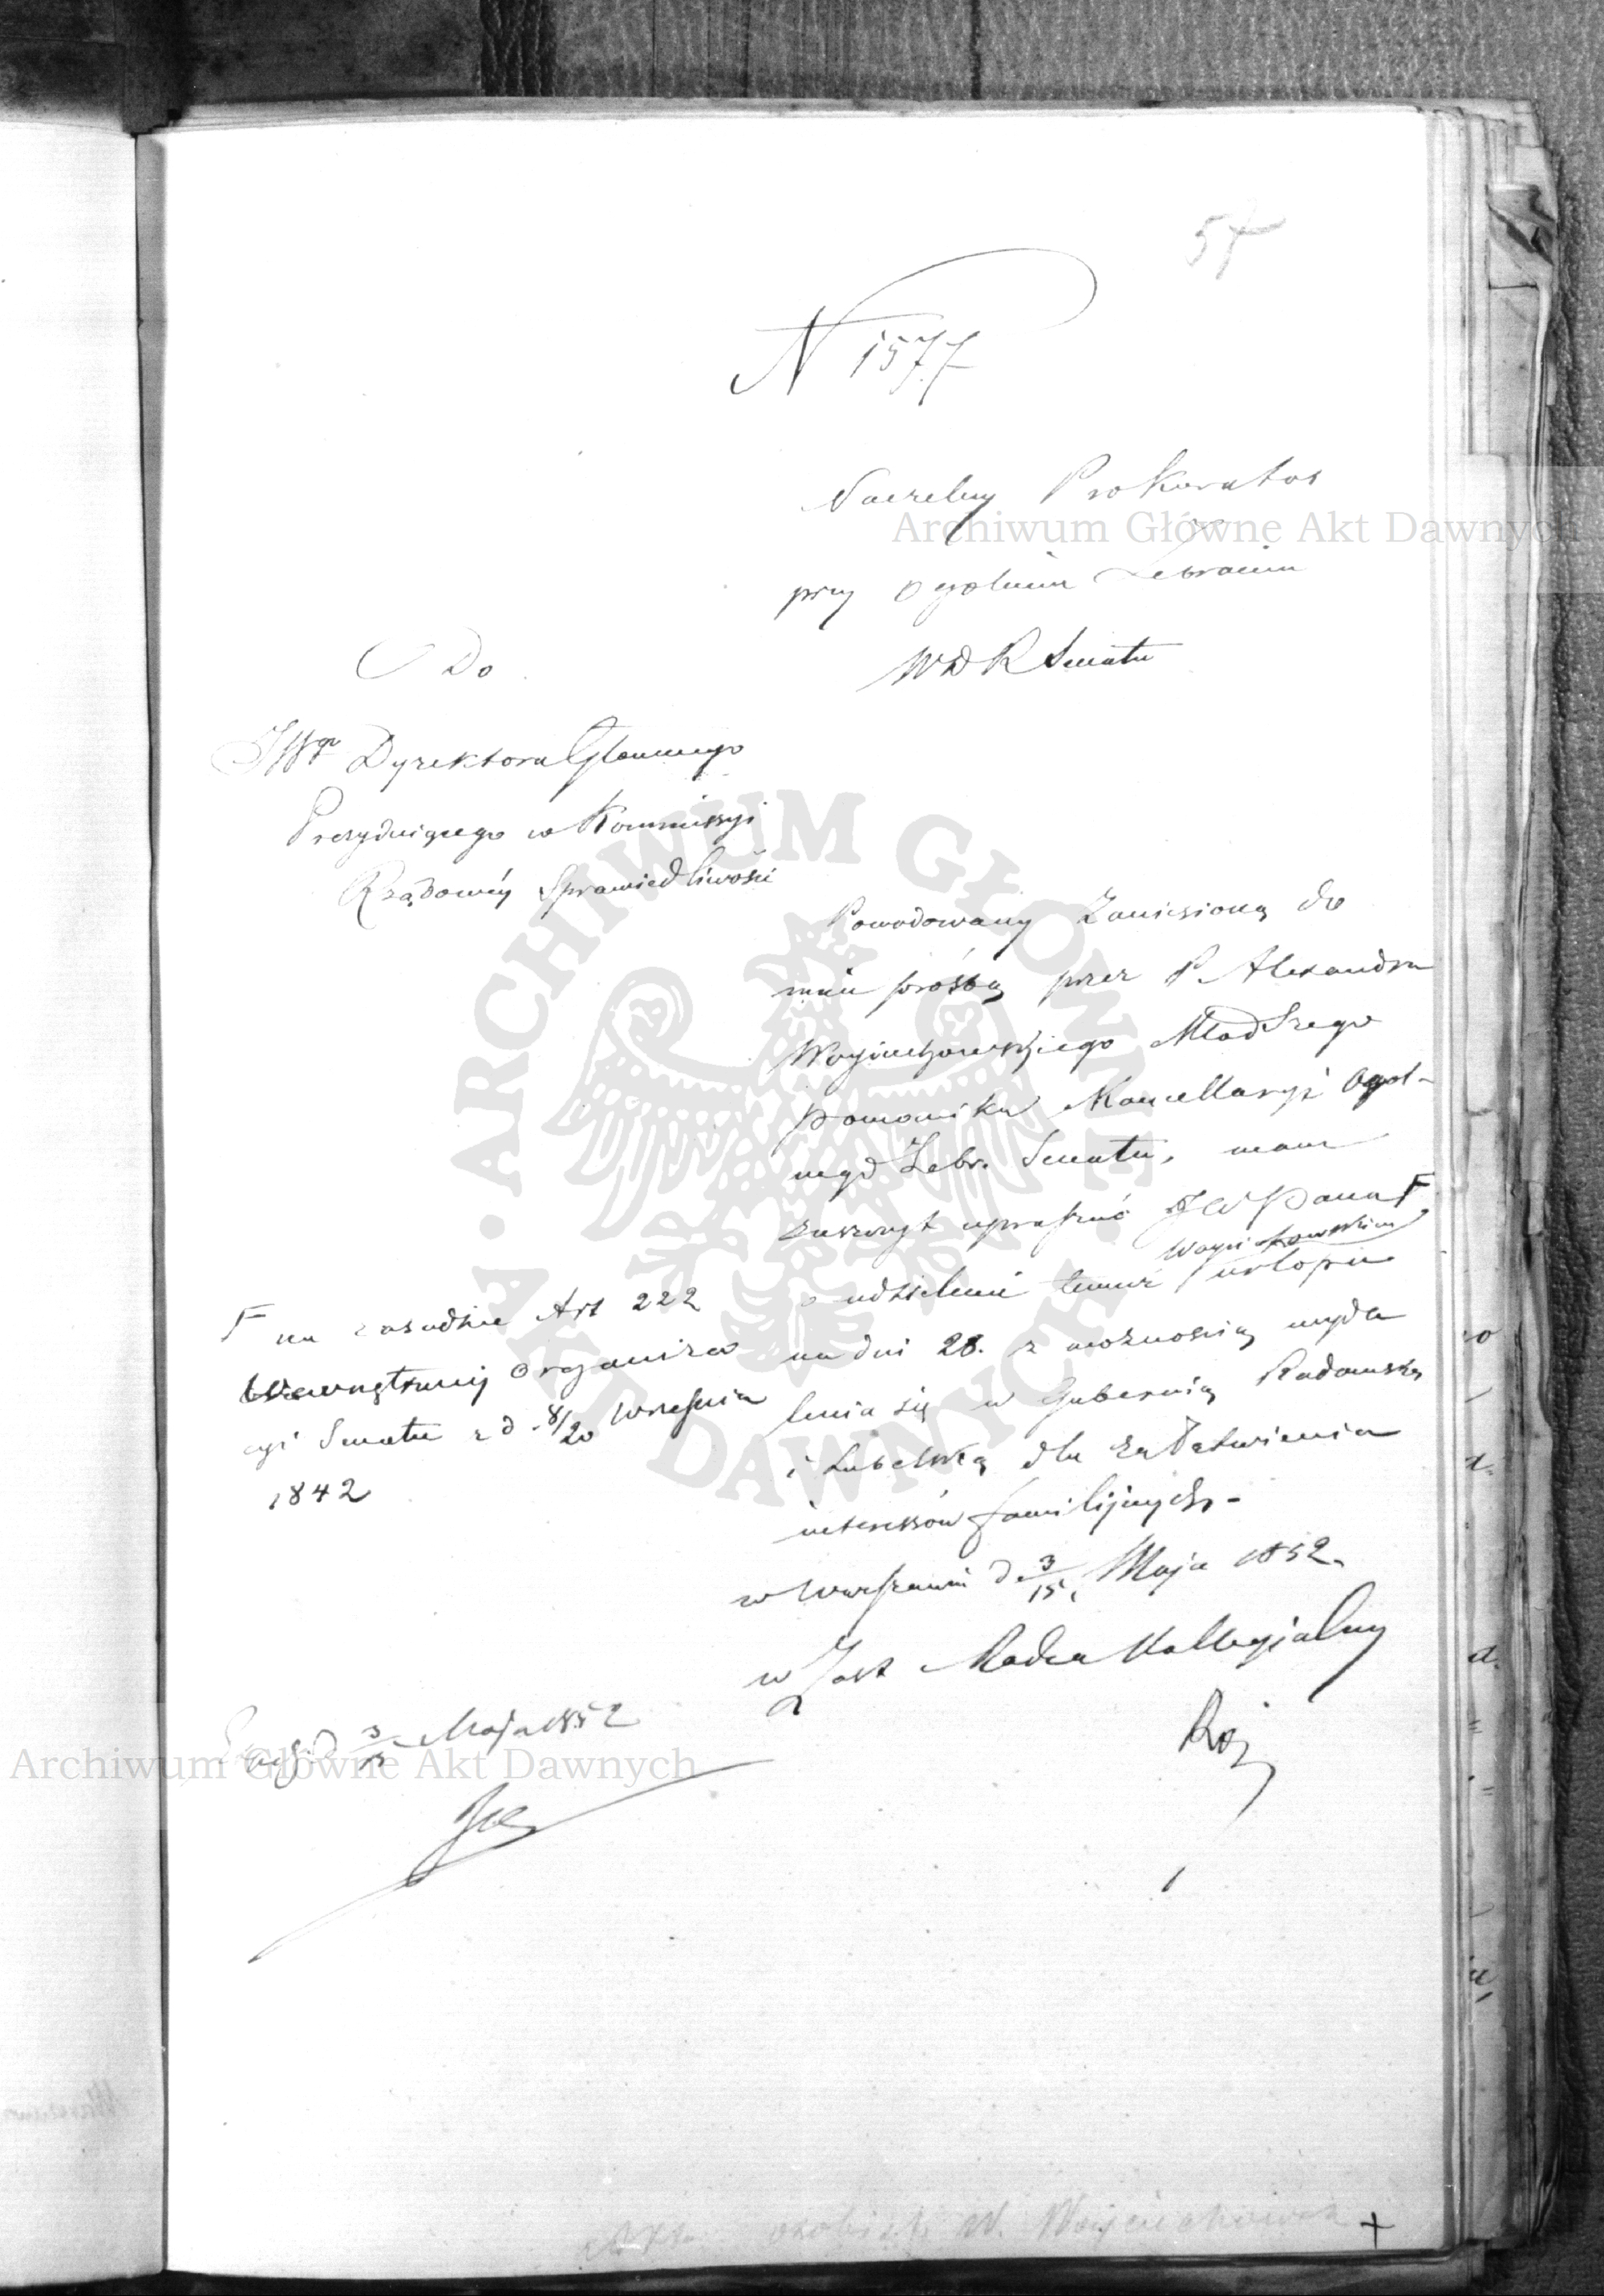 57
N 1577
Naczelny Prokurator
przy Ogólnem Zebraniu
WDR Senatu
Do
JWgo Dyrektora Głownego
Prezydującego w Kommissyi
Rządowéy Sprawiedliwości
Powodowany Zaniesioną do
mnie prośbą przez P. Alexandra
Woyciechowskiego Młodszego
Pomocnika Kancellaryi Ogol-
nego Zebr. Senatu, mam
zaszczyt upraszać JW Pana F
Woyciechowskiemu
o udzielenie temuż urlopu
na dni 28. z możnością wyda
lenia się w Gubernią Radomską
i Lubelską dla załatwienia
interessów familijnych -
w Warszawie d. 3/15 Maja 1852.
w Zast Radca Kollegialny
Roj
F na zasadzie Art 222
Wewnętrznej Organiza
cyi Senatu z d. 8/20 Września
1842
d 3/15 Maja 1852
osobiste Al. Woyciechowsk
+
Archiwum Główne Akt Dawnych
ARCHIWUM GŁÓWNE AKT DAWNYCH
Archiwum Główne Akt Dawnych